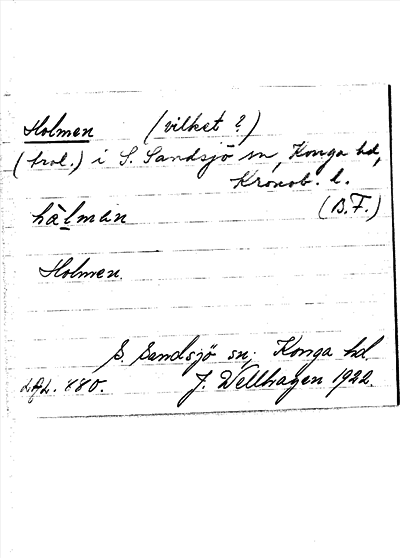 Holmen (vilket?)
(trol.) i S. Sandsjö sn, Konga hd,
Kronob. l.
hàlmən (B.F.)
Holmen.
S. Sandsjö sn, Konga hd.
J. Wellhagen 1922.